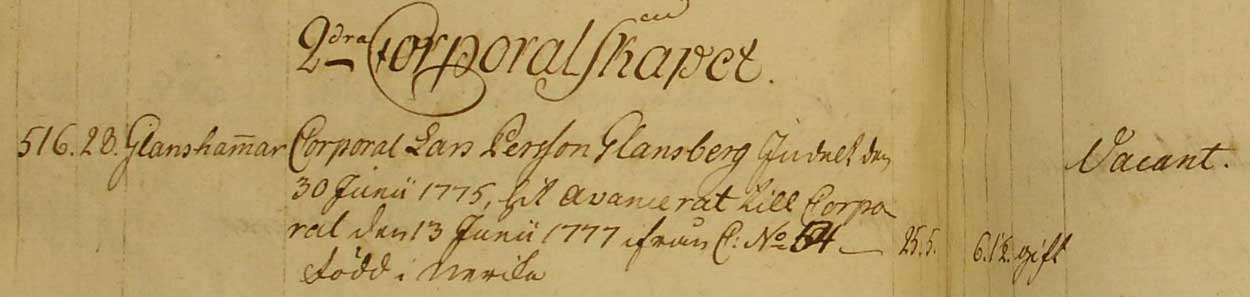 2dra Corporalskapet.
516. 28. Glanshamar Corporal Lars Persson Glansberg Indelt den Vacant.
30 Junii 1775, hit avancerat till Corpo
ral den 13 Junii 1777 ifrån C: No 54 — 25.5. 6.1½. gift
född i Nerike